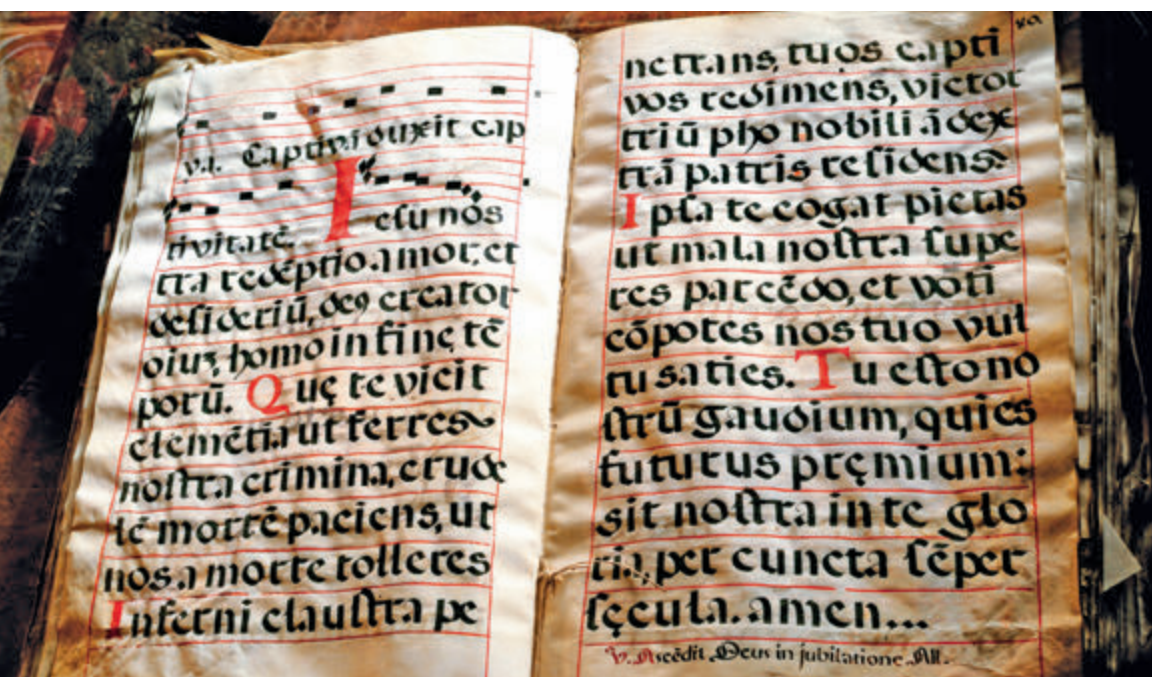 v.i. Captiva duxit cap
tivitatē. Iesu nos
tra redēptio. amor, et
desideriū, deꝰ creator
oiuʒ, homo in finę tē
porū. Quę te vicit
clemētia ut ferres
nostra crimina, crude
lē mortē paciens, ut
nos a morte tolleres
Inferni claustra pe
netrans, tuos capti
vos redimens, victor
triūpho nobili ā dex
trā patris residens.
Ipsa te cogat pietas
ut mala nostra supe
res parcēdo, et voti
cōpotes nos tuo vul
tu saties. Tu esto no
strū gaudium, qui es
futurus pręmium:
sit nostra in te glo
ria, per cuncta sēper
sęcula. amen...
V. Ascēdit Deus in jubilatione. All.